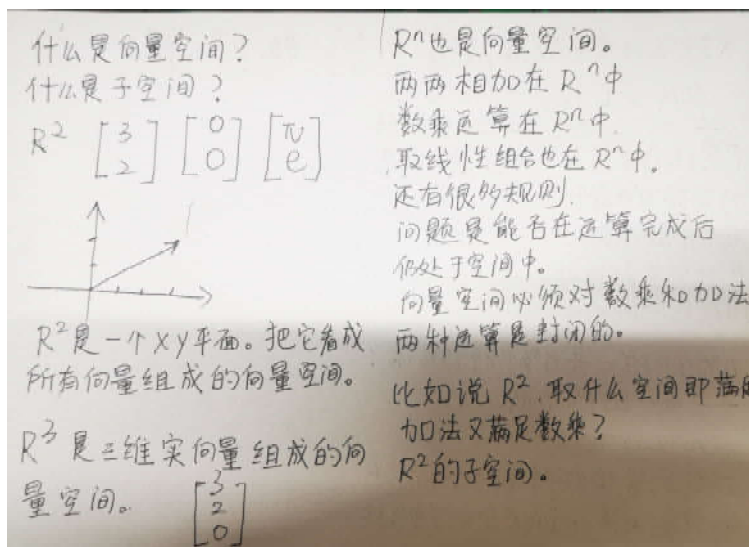 什么是向量空间？
什么是子空间？
R² [3 2] [0 0] [π e]
R²是一个XY平面。把它看成
所有向量组成的向量空间。
R³是三维实向量组成的向
量空间。 [3 2 0]
Rⁿ也是向量空间。
两两相加在Rⁿ中
数乘运算在Rⁿ中.
取线性组合也在Rⁿ中.
还有很多规则.
问题是能否在运算完成后
仍处于空间中。
向量空间必须对数乘和加法
两种运算是封闭的。
比如说R².取什么空间即满足
加法又满足数乘？
R²的子空间。